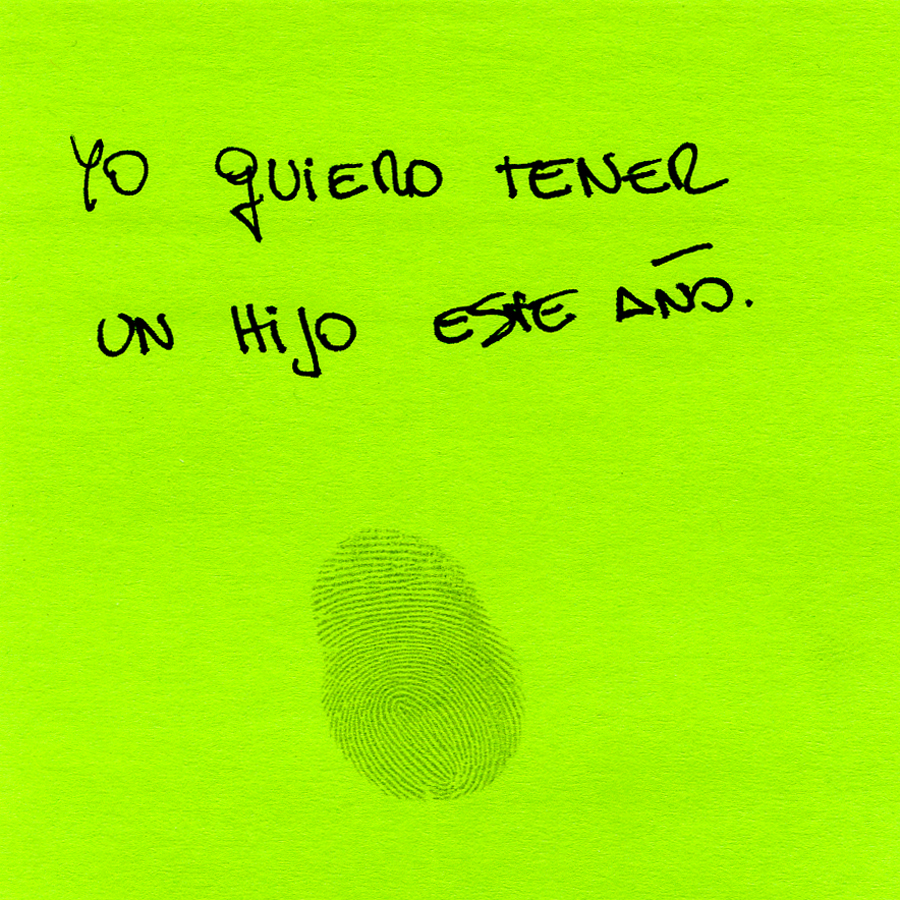 YO QUIERO TENER
UN HIJO ESTE AÑO.